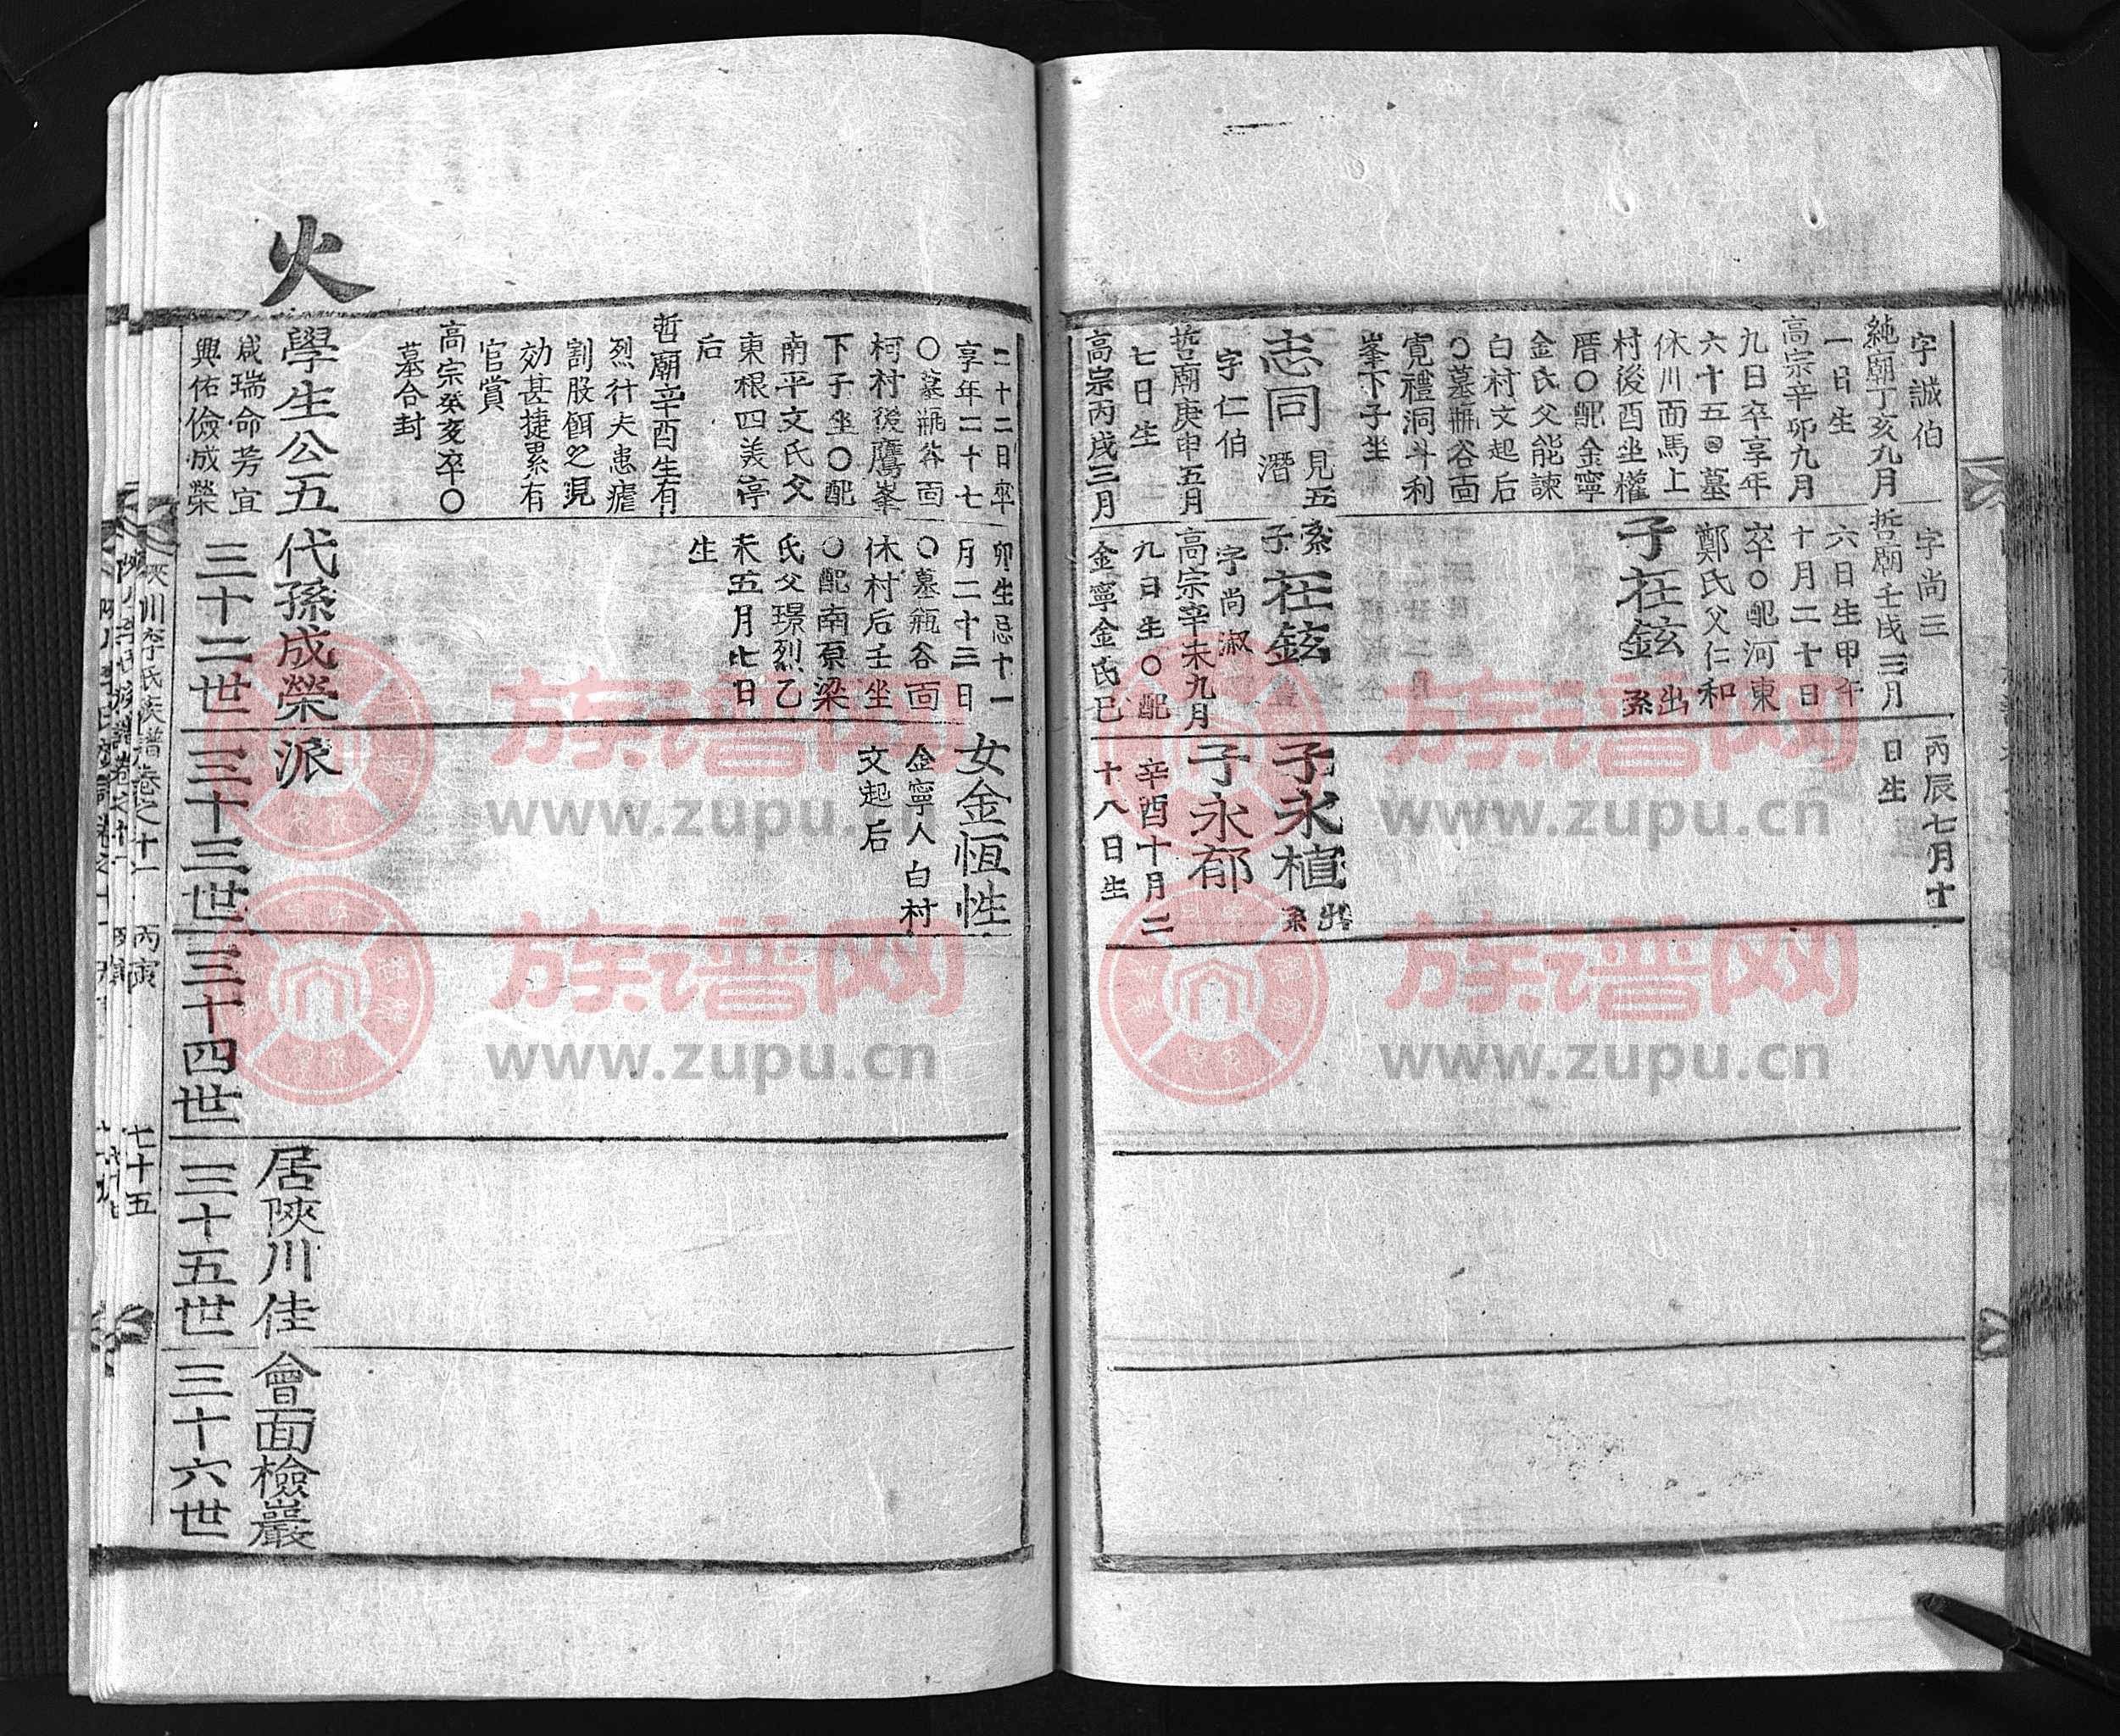 字誠伯
純廟丁亥九月
一日生
高宗辛卯九月
九日卒享年
六十五○墓
休川面馬上
村後酉坐權
厝○配金寧
金氏父能諫
白村文起后
○墓瓶谷面
寛禮洞斗利
峯下子坐
志同
見五
潛
字仁伯
哲廟庚申五月
七日生
高宗丙戌三月
字尚三
哲廟壬戌三月
六日生甲午
十月二十日
卒○配河東
鄭氏父仁和
子在鉉
出系
系子在鉉
字尚淑
高宗辛未九月
九日生○配
金寧金氏已
丙辰七月十
日生
子永植
出系
子永郁
辛酉十月二
十八日生
二十二日卒
享年二十七
○墓瓶谷面
柯村後鷹峯
下子坐○配
南平文氏父
東根四美停
后
哲廟辛酉生有
烈行夫患瘧
割股餌之現
効甚捷累有
官賞
高宗癸亥卒○
墓合封
卯生忌十一
月二十三日
○墓瓶谷面
休村后壬坐
○配南原梁
氏父璟烈乙
未五月七日
生
女金恆性
金寧人白村
文起后
火
學生公五代孫成榮派
居陜川佳會面檢巖
咸瑞命芳宜
興佑儉成榮
三十二世
三十三世
三十四世
三十五世
三十六世
陜川李氏族譜卷之十一 丙寅 七十五
族谱网
www.zupu.cn
族谱网
www.zupu.cn
族谱网
www.zupu.cn
族谱网
www.zupu.cn